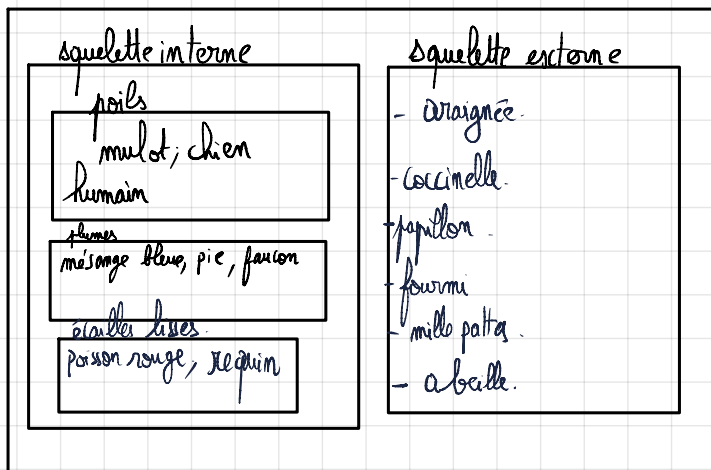 squelette interne
poils
mulot, chien
humain
plumes
mésange bleue, pie, faucon
écailles lisses.
poisson rouge, requin
squelette externe
- araignée.
- coccinelle.
- papillon.
- fourmi
- mille pattes.
- abeille.